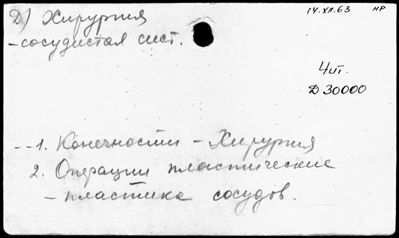 Д) Хирургия
14.XII.63 НР
- сосудистая сист.
4 ит.
Д 30000
-- 1. Конечности - Хирургия
2. Операции пластические
- пластика сосудов.